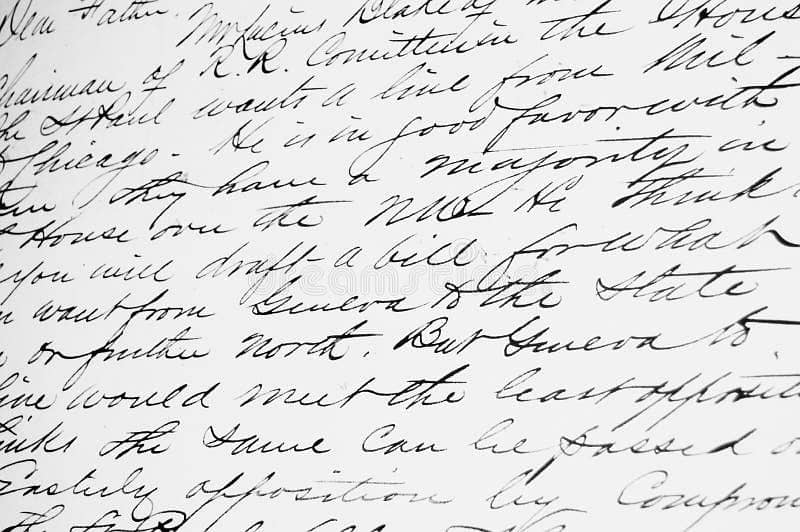 Dear Father. Mr Lucius Blake of
Chairman of R.R. Comittee in the House
the St Paul wants a line from Mil-
Chicago - He is in good favor with
They have a majority in
House over the He think
you will draft a bill for what
want from Geneva to the State
or further north. But Geneva to
line would meet the least oppositi
inks the same can be passed o
Easterly opposition by Comprom
the St P
dreamstime